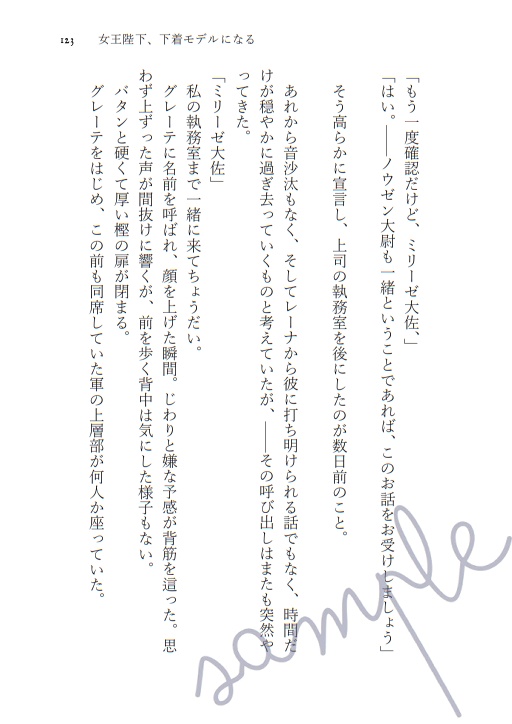 123 女王陛下、下着モデルになる
「もう一度確認だけど、ミリーゼ大佐、」
「はい。――ノウゼン大尉も一緒ということであれば、このお話をお受けしましょう」
そう高らかに宣言し、上司の執務室を後にしたのが数日前のこと。
あれから音沙汰もなく、そしてレーナから彼に打ち明けられる話でもなく、時間だ
けが穏やかに過ぎ去っていくものと考えていたが、――その呼び出しはまたも突然や
ってきた。
「ミリーゼ大佐」
私の執務室まで一緒に来てちょうだい。
グレーテに名前を呼ばれ、顔を上げた瞬間。じわりと嫌な予感が背筋を這った。思
わず上ずった声が間抜けに響くが、前を歩く背中は気にした様子もない。
バタンと硬くて厚い樫の扉が閉まる。
グレーテをはじめ、この前も同席していた軍の上層部が何人か座っていた。
sample